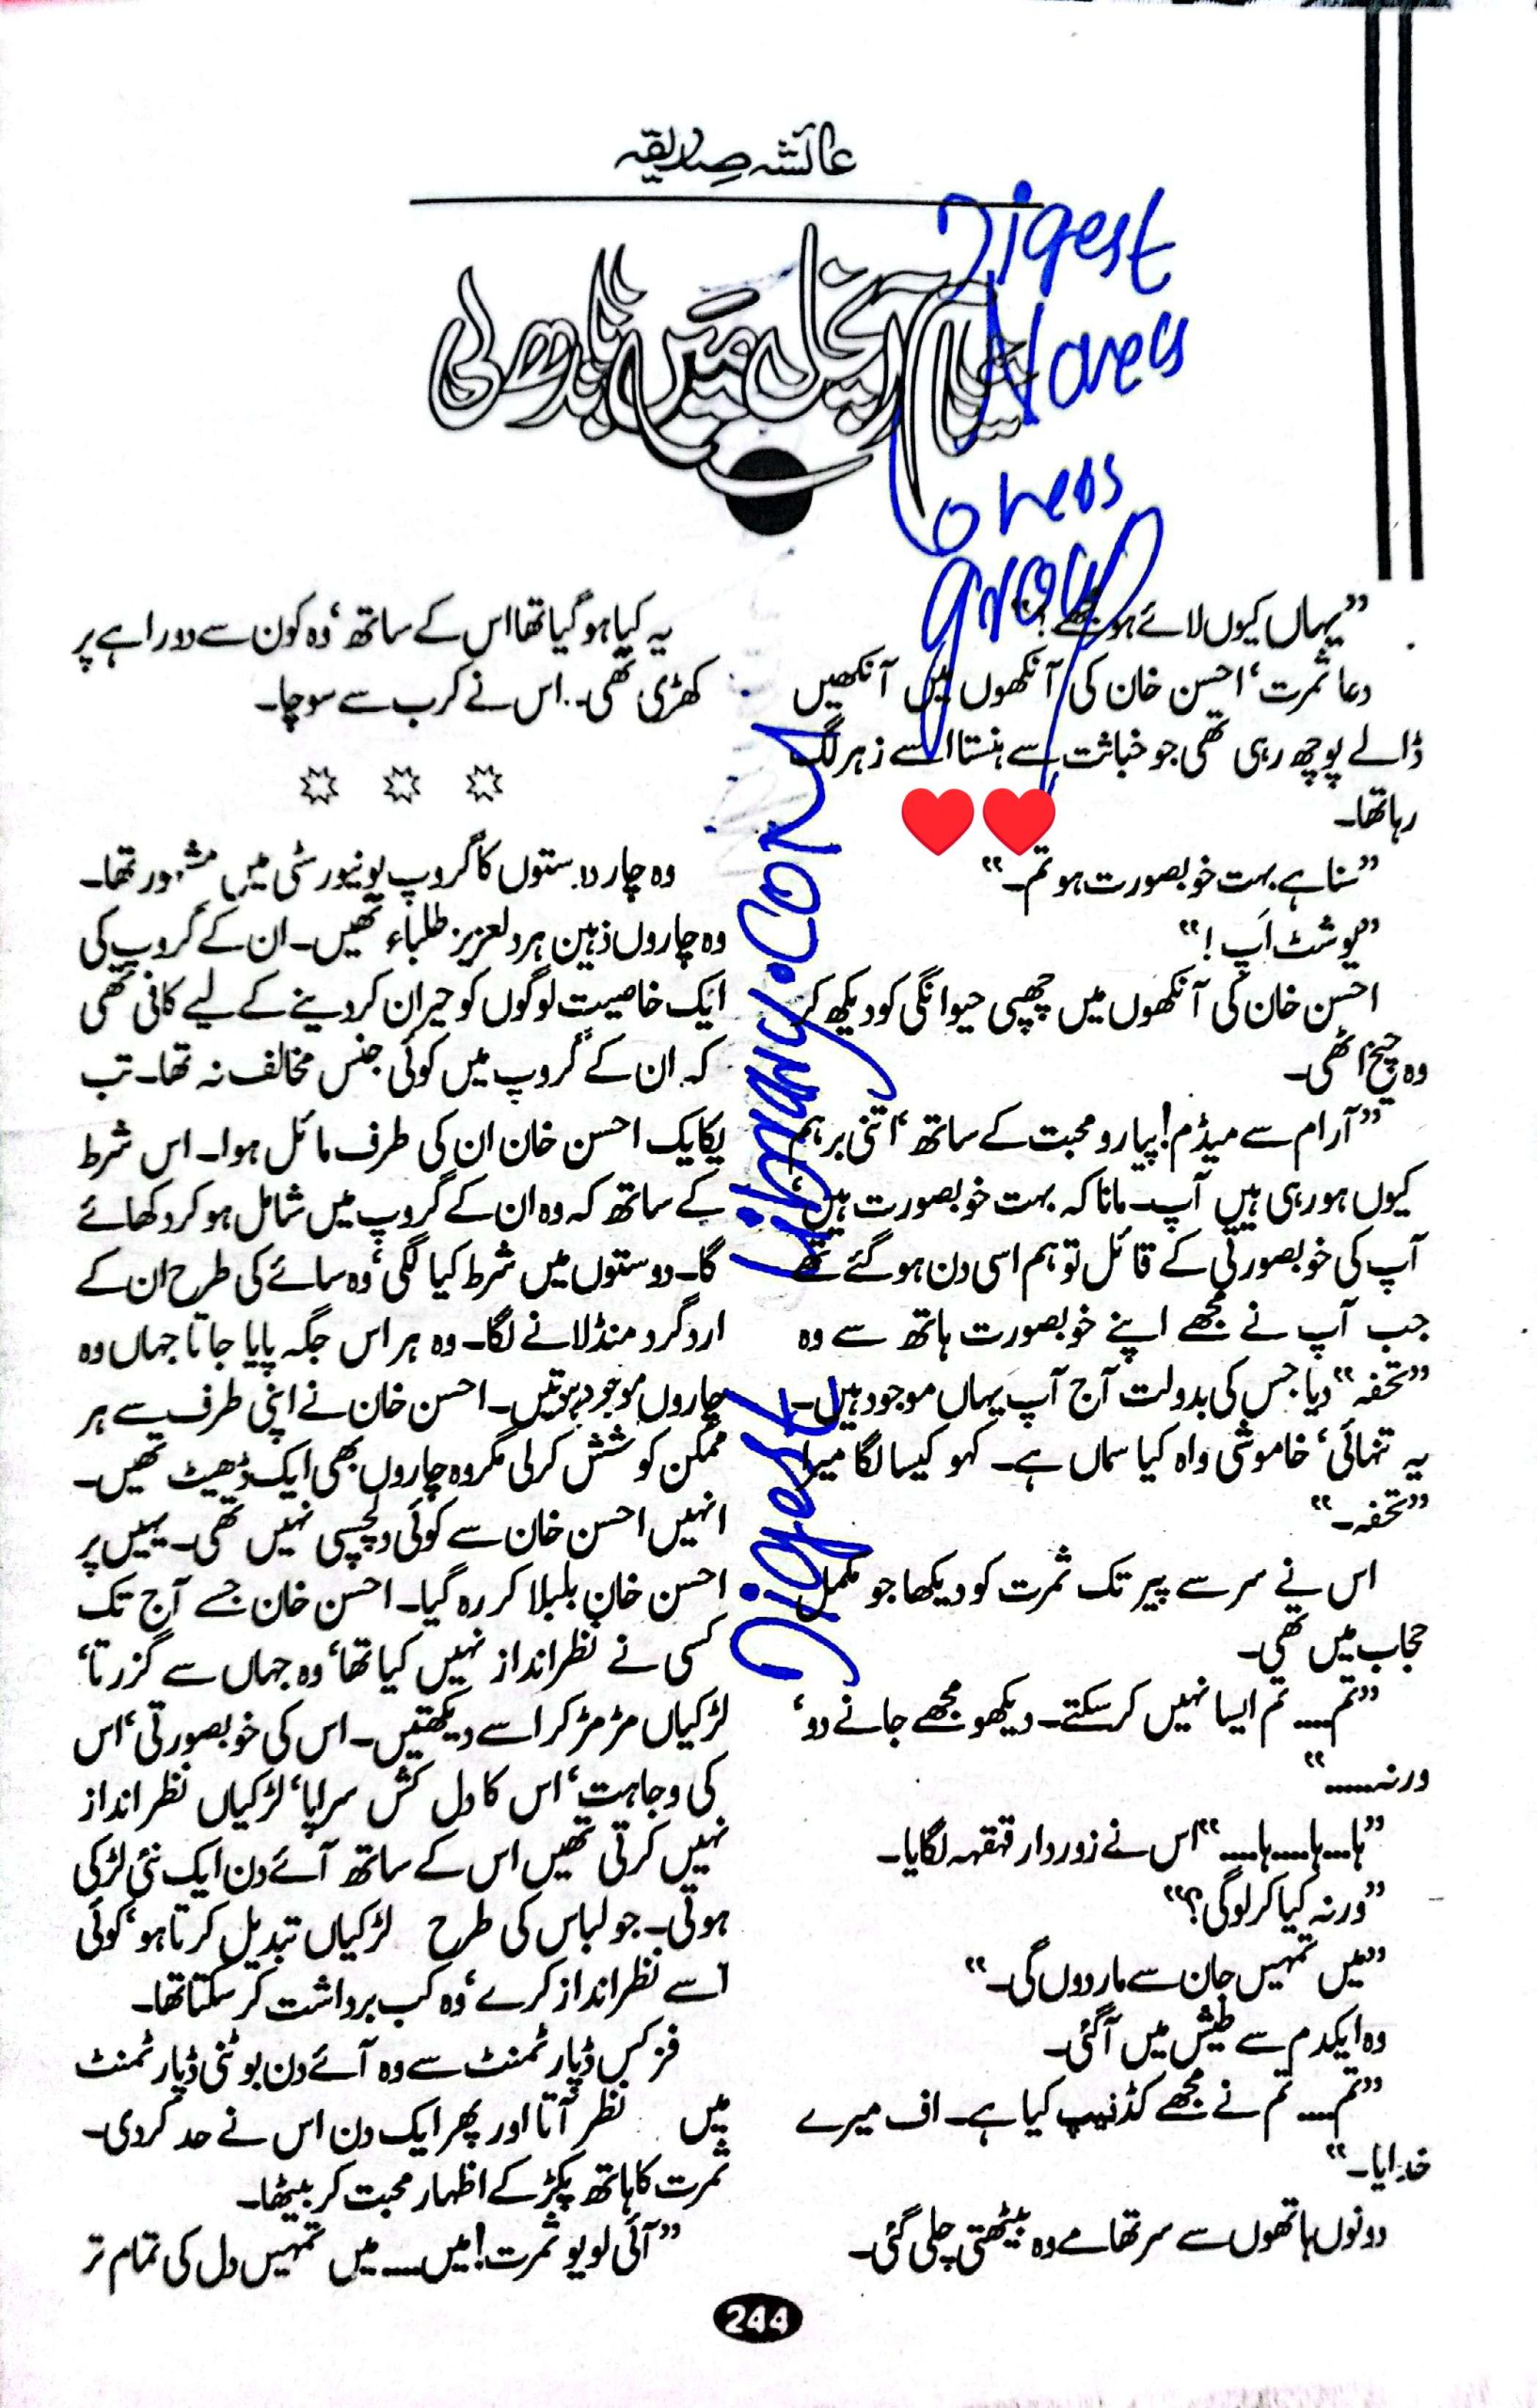 عائشہ صدیقہ
آنچل میں باندھ لی
Digest
Novels
Lovers
group
”یہاں کیوں لائے ہو مجھے؟“
دعا ثمرت، احسن خان کی آنکھوں میں آنکھیں
ڈالے پوچھ رہی تھی جو خباثت سے ہنستا اسے زہر لگ
رہا تھا۔
”سنا ہے بہت خوبصورت ہو تم۔“
”یو شٹ اَپ!“
احسن خان کی آنکھوں میں چھپی حیوانگی کو دیکھ کر
وہ چیخ اٹھی۔
”آرام سے میڈم! پیار و محبت کے ساتھ، اتنی برہم
کیوں ہو رہی ہیں آپ۔ مانا کہ بہت خوبصورت ہیں،
آپ کی خوبصورتی کے قائل تو ہم اسی دن ہو گئے تھے
جب آپ نے مجھے اپنے خوبصورت ہاتھ سے وہ
”تحفہ“ دیا جس کی بدولت آج آپ یہاں موجود ہیں۔
یہ تنہائی، خاموشی واہ کیا سماں ہے۔ کہو کیسا لگا میرا
”تحفہ۔“
اس نے سر سے پیر تک ثمرت کو دیکھا جو مکمل
حجاب میں تھی۔
”تم.... تم ایسا نہیں کر سکتے۔ دیکھو مجھے جانے دو،
ورنہ......“
”ہا....ہا....ہا....“ اس نے زوردار قہقہہ لگایا۔
”ورنہ کیا کر لو گی؟“
”میں تمہیں جان سے مار دوں گی۔“
وہ ایکدم سے طیش میں آ گئی۔
”تم.... تم نے مجھے کڈنیپ کیا ہے۔ اف میرے
خدایا۔“
دونوں ہاتھوں سے سر تھامے وہ بیٹھتی چلی گئی۔
یہ کیا ہو گیا تھا اس کے ساتھ، وہ کون سے دوراہے پر
کھڑی تھی.. اس نے کرب سے سوچا۔
وہ چار دوستوں کا گروپ یونیورسٹی میں مشہور تھا۔
وہ چاروں ذہین ہر دلعزیز طلباء تھیں۔ ان کے گروپ کی
ایک خاصیت لوگوں کو حیران کر دینے کے لیے کافی تھی
کہ ان کے گروپ میں کوئی جنس مخالف نہ تھا۔ تب
یکایک احسن خان ان کی طرف مائل ہوا۔ اس شرط
کے ساتھ کہ وہ ان کے گروپ میں شامل ہو کر دکھائے
گا۔ دوستوں میں شرط کیا لگی، وہ سائے کی طرح ان کے
ارد گرد منڈلانے لگا۔ وہ ہر اس جگہ پایا جاتا جہاں وہ
چاروں موجود ہوتیں۔ احسن خان نے اپنی طرف سے ہر
ممکن کوشش کر لی مگر وہ چاروں بھی ایک ڈھیٹ تھیں۔
انہیں احسن خان سے کوئی دلچسپی نہیں تھی۔ یہیں پر
احسن خان بلبلا کر رہ گیا۔ احسن خان جسے آج تک
کسی نے نظر انداز نہیں کیا تھا، وہ جہاں سے گزرتا،
لڑکیاں مڑ مڑ کر اسے دیکھتیں۔ اس کی خوبصورتی، اس
کی وجاہت، اس کا دل کش سراپا، لڑکیاں نظر انداز
نہیں کرتی تھیں اس کے ساتھ آئے دن ایک نئی لڑکی
ہوتی۔ جو لباس کی طرح لڑکیاں تبدیل کرتا ہو، کوئی
اسے نظر انداز کرے، وہ کب برداشت کر سکتا تھا۔
فزکس ڈپارٹمنٹ سے وہ آئے دن بوٹنی ڈپارٹمنٹ
میں نظر آتا اور پھر ایک دن اس نے حد کر دی۔
ثمرت کا ہاتھ پکڑ کے اظہار محبت کر بیٹھا۔
”آئی لو یو ثمرت! میں.... میں تمہیں دل کی تمام تر
Digest Library.com
244